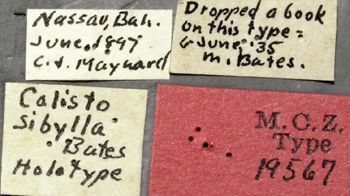 Nassau, Bah.
June, 1897
C. J. Maynard
Dropped a book
on this type =
6 June '35
M. Bates.
Calisto
sibylla
Bates
Holotype
M. C. Z.
Type
19567